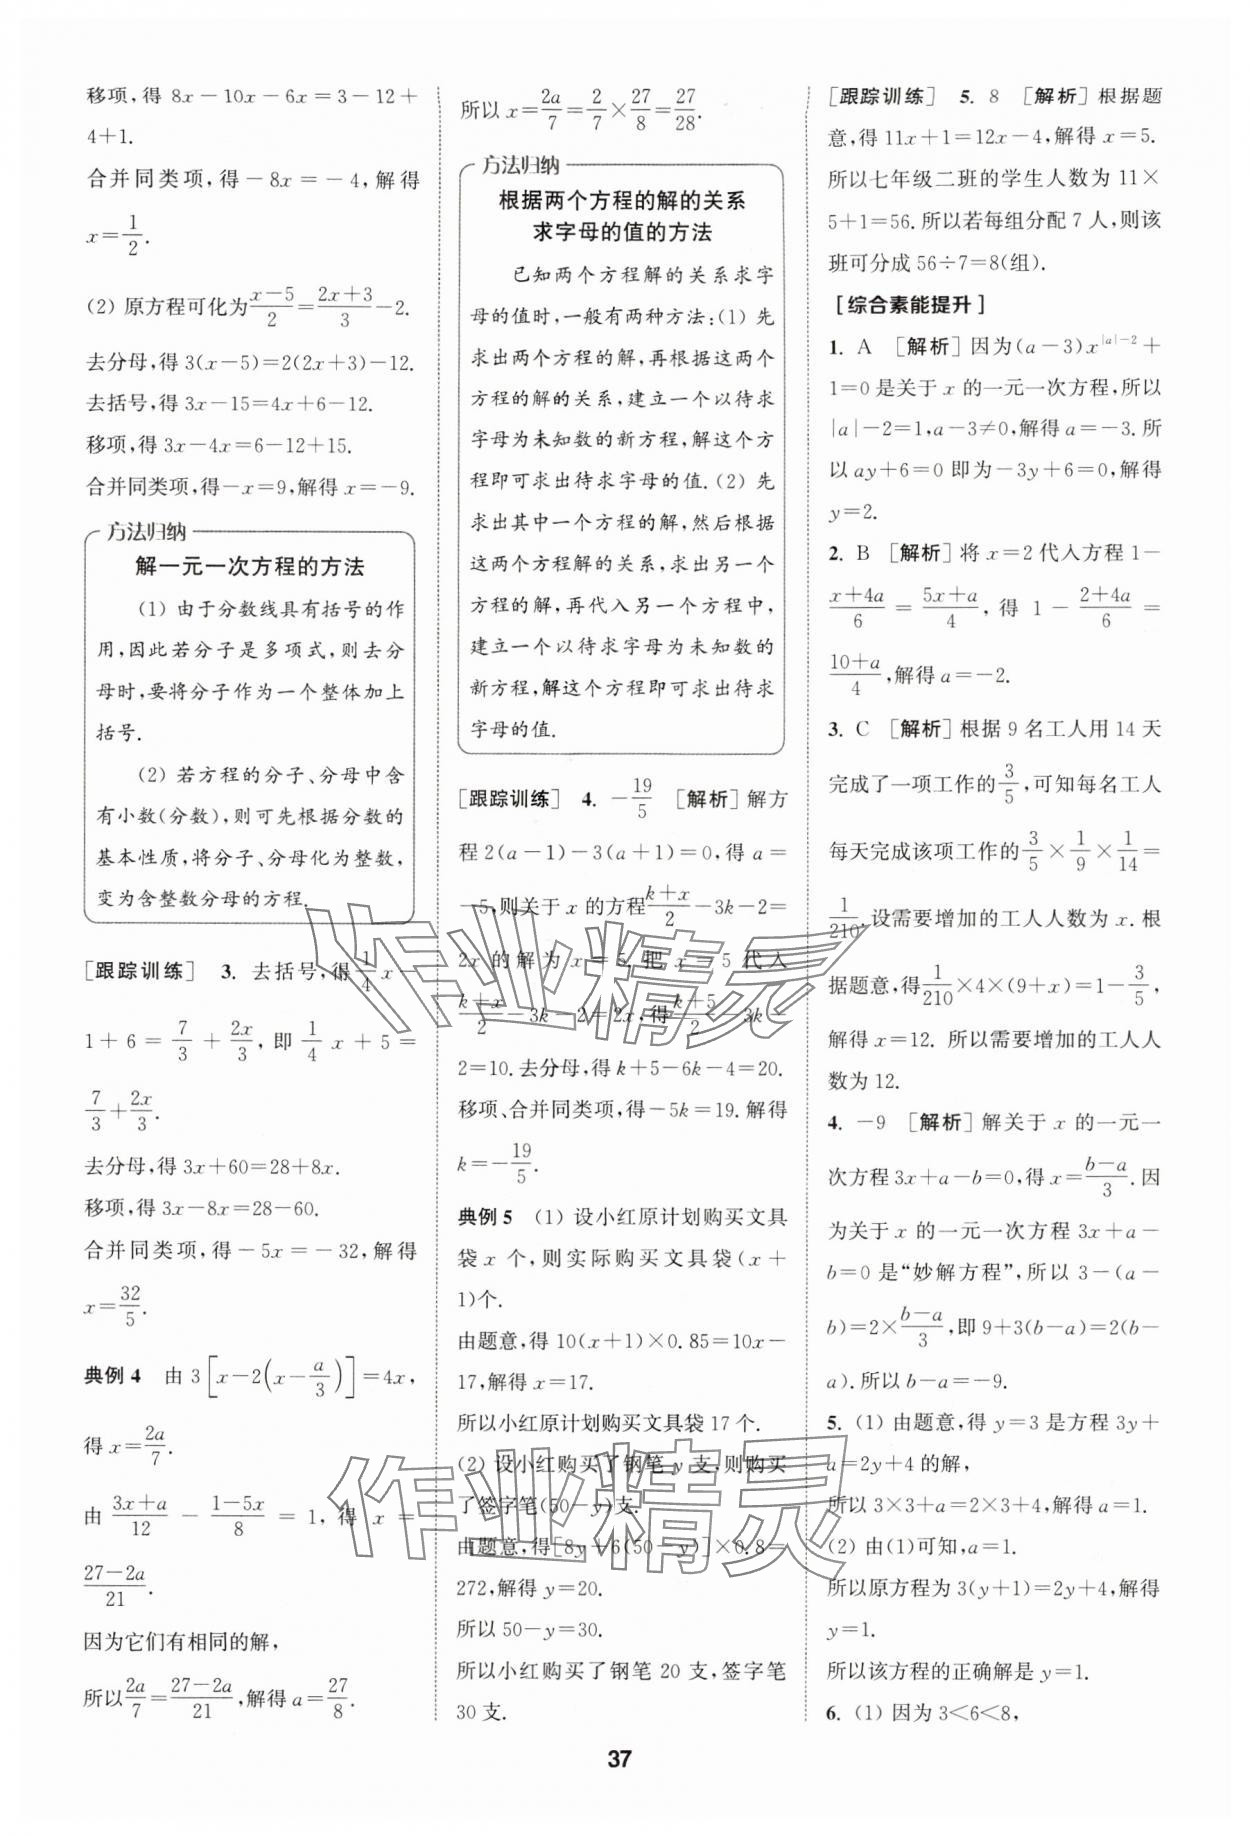 移项,得 8x－10x－6x＝3－12＋
4＋1.
合并同类项,得－8x＝－4,解得
x＝1/2.
(2) 原方程可化为(x－5)/2＝(2x＋3)/3－2.
去分母,得 3(x－5)＝2(2x＋3)－12.
去括号,得 3x－15＝4x＋6－12.
移项,得 3x－4x＝6－12＋15.
合并同类项,得－x＝9,解得 x＝－9.
方法归纳
解一元一次方程的方法
(1) 由于分数线具有括号的作
用,因此若分子是多项式,则去分
母时,要将分子作为一个整体加上
括号.
(2) 若方程的分子、分母中含
有小数(分数),则可先根据分数的
基本性质,将分子、分母化为整数,
变为含整数分母的方程.
[跟踪训练] 3. 去括号,得 1/4 x－
1＋6＝7/3＋2x/3,即 1/4 x＋5＝
7/3＋2x/3.
去分母,得 3x＋60＝28＋8x.
移项,得 3x－8x＝28－60.
合并同类项,得－5x＝－32,解得
x＝32/5.
典例 4 由 3[x－2(x－a/3)]＝4x,
得 x＝2a/7.
由 (3x＋a)/12－(1－5x)/8＝1,得 x＝
(27－2a)/21.
因为它们有相同的解,
所以2a/7＝(27－2a)/21,解得 a＝27/8.
所以 x＝2a/7＝2/7×27/8＝27/28.
方法归纳
根据两个方程的解的关系
求字母的值的方法
已知两个方程解的关系求字
母的值时,一般有两种方法:(1) 先
求出两个方程的解,再根据这两个
方程的解的关系,建立一个以待求
字母为未知数的新方程,解这个方
程即可求出待求字母的值.(2) 先
求出其中一个方程的解,然后根据
这两个方程解的关系,求出另一个
方程的解,再代入另一个方程中,
建立一个以待求字母为未知数的
新方程,解这个方程即可求出待求
字母的值.
[跟踪训练] 4. －19/5 [解析]解方
程 2(a－1)－3(a＋1)＝0,得 a＝
－5,则关于 x 的方程(k＋x)/2－3k－2＝
2x 的解为 x＝5. 把 x＝5 代入
(k＋x)/2－3k－2＝2x,得(k＋5)/2－3k－
2＝10.去分母,得 k＋5－6k－4＝20.
移项、合并同类项,得－5k＝19.解得
k＝－19/5.
典例 5 (1) 设小红原计划购买文具
袋 x 个,则实际购买文具袋(x＋
1)个.
由题意,得 10(x＋1)×0.85＝10x－
17,解得 x＝17.
所以小红原计划购买文具袋 17 个.
(2) 设小红购买了钢笔 y 支,则购买
了签字笔(50－y)支.
由题意,得[8y＋6(50－y)]×0.8＝
272,解得 y＝20.
所以 50－y＝30.
所以小红购买了钢笔 20 支,签字笔
30 支.
[跟踪训练] 5. 8 [解析]根据题
意,得 11x＋1＝12x－4,解得 x＝5.
所以七年级二班的学生人数为 11×
5＋1＝56.所以若每组分配 7 人,则该
班可分成 56÷7＝8(组).
[综合素能提升]
1. A [解析]因为(a－3)x^(|a|－2)＋
1＝0 是关于 x 的一元一次方程,所以
|a|－2＝1,a－3≠0,解得 a＝－3.所
以 ay＋6＝0 即为－3y＋6＝0,解得
y＝2.
2. B [解析]将 x＝2 代入方程 1－
(x＋4a)/6＝(5x＋a)/4,得 1－(2＋4a)/6＝
(10＋a)/4,解得 a＝－2.
3. C [解析]根据 9 名工人用 14 天
完成了一项工作的3/5,可知每名工人
每天完成该项工作的3/5×1/9×1/14＝
1/210.设需要增加的工人人数为 x.根
据题意,得1/210×4×(9＋x)＝1－3/5,
解得 x＝12. 所以需要增加的工人人
数为 12.
4. －9 [解析]解关于 x 的一元一
次方程 3x＋a－b＝0,得 x＝(b－a)/3.因
为关于 x 的一元一次方程 3x＋a－
b＝0 是“妙解方程”,所以 3－(a－
b)＝2×(b－a)/3,即 9＋3(b－a)＝2(b－
a).所以 b－a＝－9.
5. (1) 由题意,得 y＝3 是方程 3y＋
a＝2y＋4 的解,
所以 3×3＋a＝2×3＋4,解得 a＝1.
(2) 由(1)可知,a＝1.
所以原方程为 3(y＋1)＝2y＋4,解得
y＝1.
所以该方程的正确解是 y＝1.
6. (1) 因为 3＜6＜8,
37
作业精灵
作业精灵